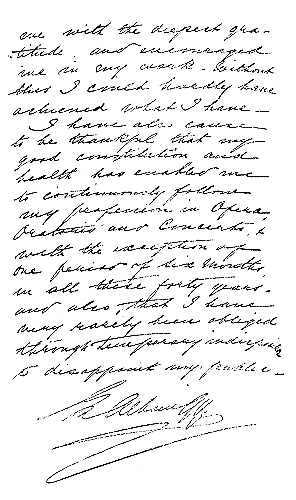 me with the deepest gra-
titude and encouraged
me in my work - without
this I could hardly have
achieved what I have -
I have also cause
to be thankful that my
good constitution and
health has enabled me
to continuously follow
my profession in Opera,
Oratorio and Concerts, &
with the exception of
one period of six months,
in all these forty years -
and also, that I have
very rarely been obliged
through temporary indisposi
to disappoint my public -